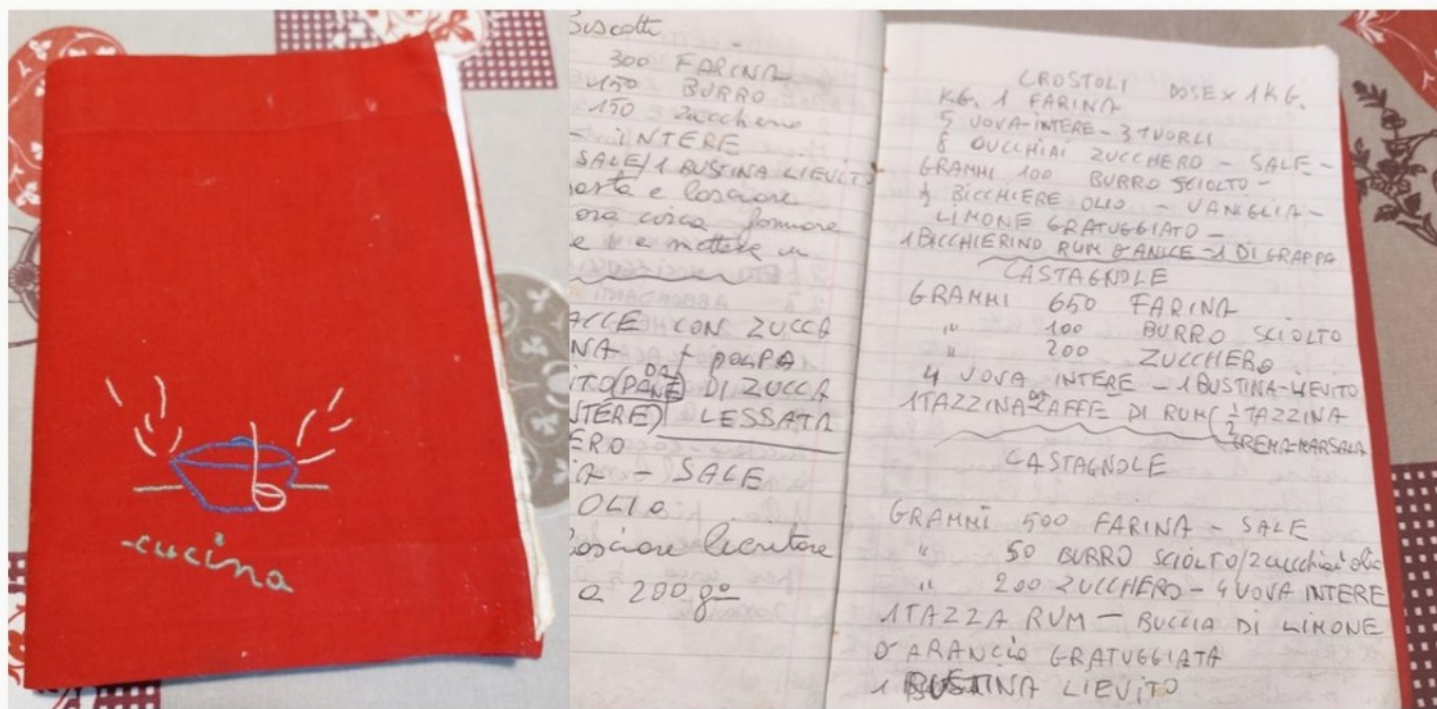 -cucina
Biscotti
300 FARINA
150 BURRO
150 Zucchero
- INTERE
SALE/1 BUSTINA LIEVITO
pasta e lasciare
ora circa formare
e e mettere in
ACCE CON ZUCCA
NA + POLPA
ITO (PANE) DA DI ZUCCA
NTERE) LESSATA
ERO
IA - SALE
OLIO
lasciare lievitare
a 200 go
CROSTOLI DOSE X 1 KG.
KG. 1 FARINA
5 UOVA-INTERE - 3 TUORLI
8 CUCCHIAI ZUCCHERO - SALE -
GRAMMI 100 BURRO SCIOLTO -
½ BICCHIERE OLIO - VANIGLIA -
LIMONE GRATUGGIATO -
1 BICCHIERINO RUM O ANICE - 1 DI GRAPPA
CASTAGNOLE
GRAMMI 650 FARINA
" 100 BURRO SCIOLTO
" 200 ZUCCHERO
4 UOVA INTERE - 1 BUSTINA-LIEVITO
1 TAZZINA DA CAFFE DI RUM ( ½ TAZZINA
CREMA-MARSALA
CASTAGNOLE
GRAMMI 500 FARINA - SALE
" 50 BURRO SCIOLTO/2 cucchiai olio
" 200 ZUCCHERO - 4 UOVA INTERE
1 TAZZA RUM - BUCCIA DI LIMONE
O ARANCIO GRATUGGIATA
1 BUSTINA LIEVITO